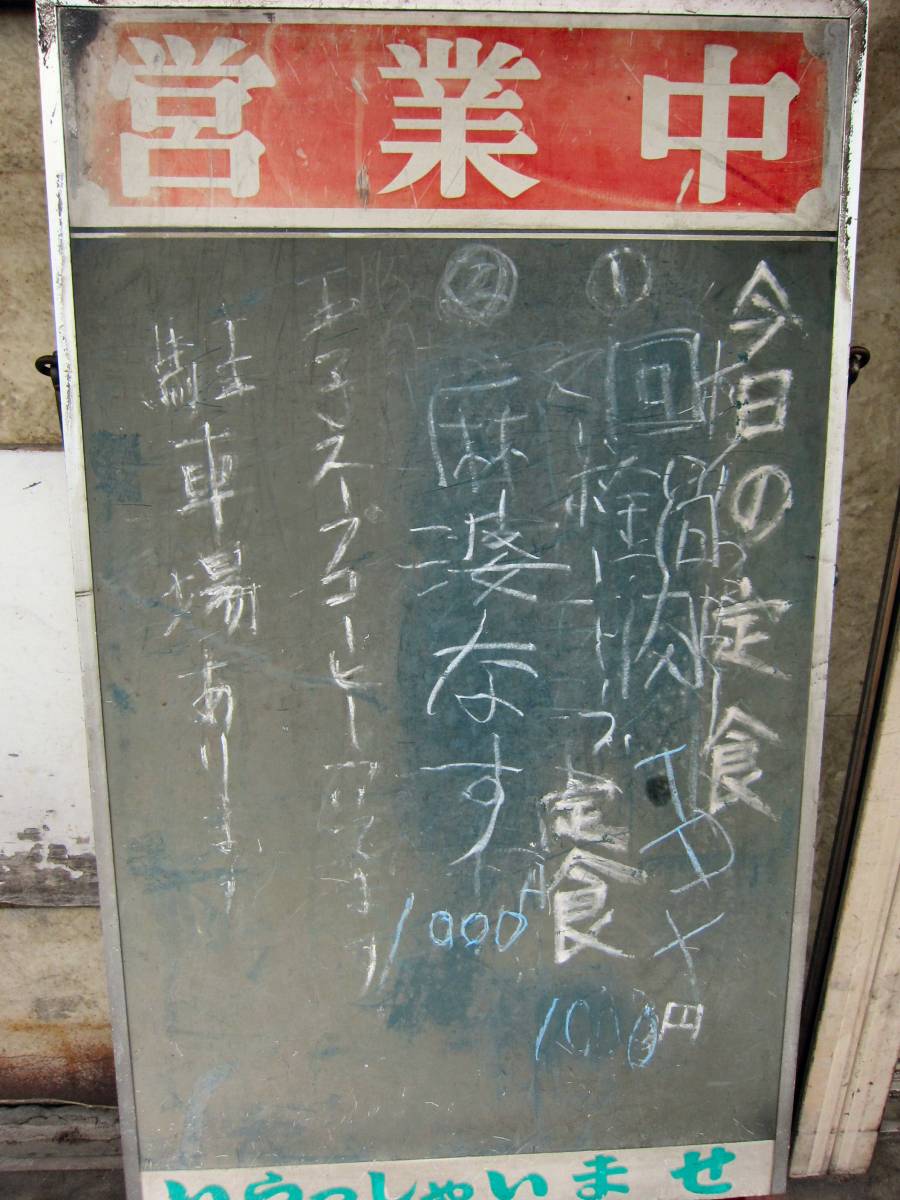 営業中
今日の定食
① 回鍋肉
定食
1000円
② 麻婆なす
1000
スープコーヒー
駐車場あります
いらっしゃいませ